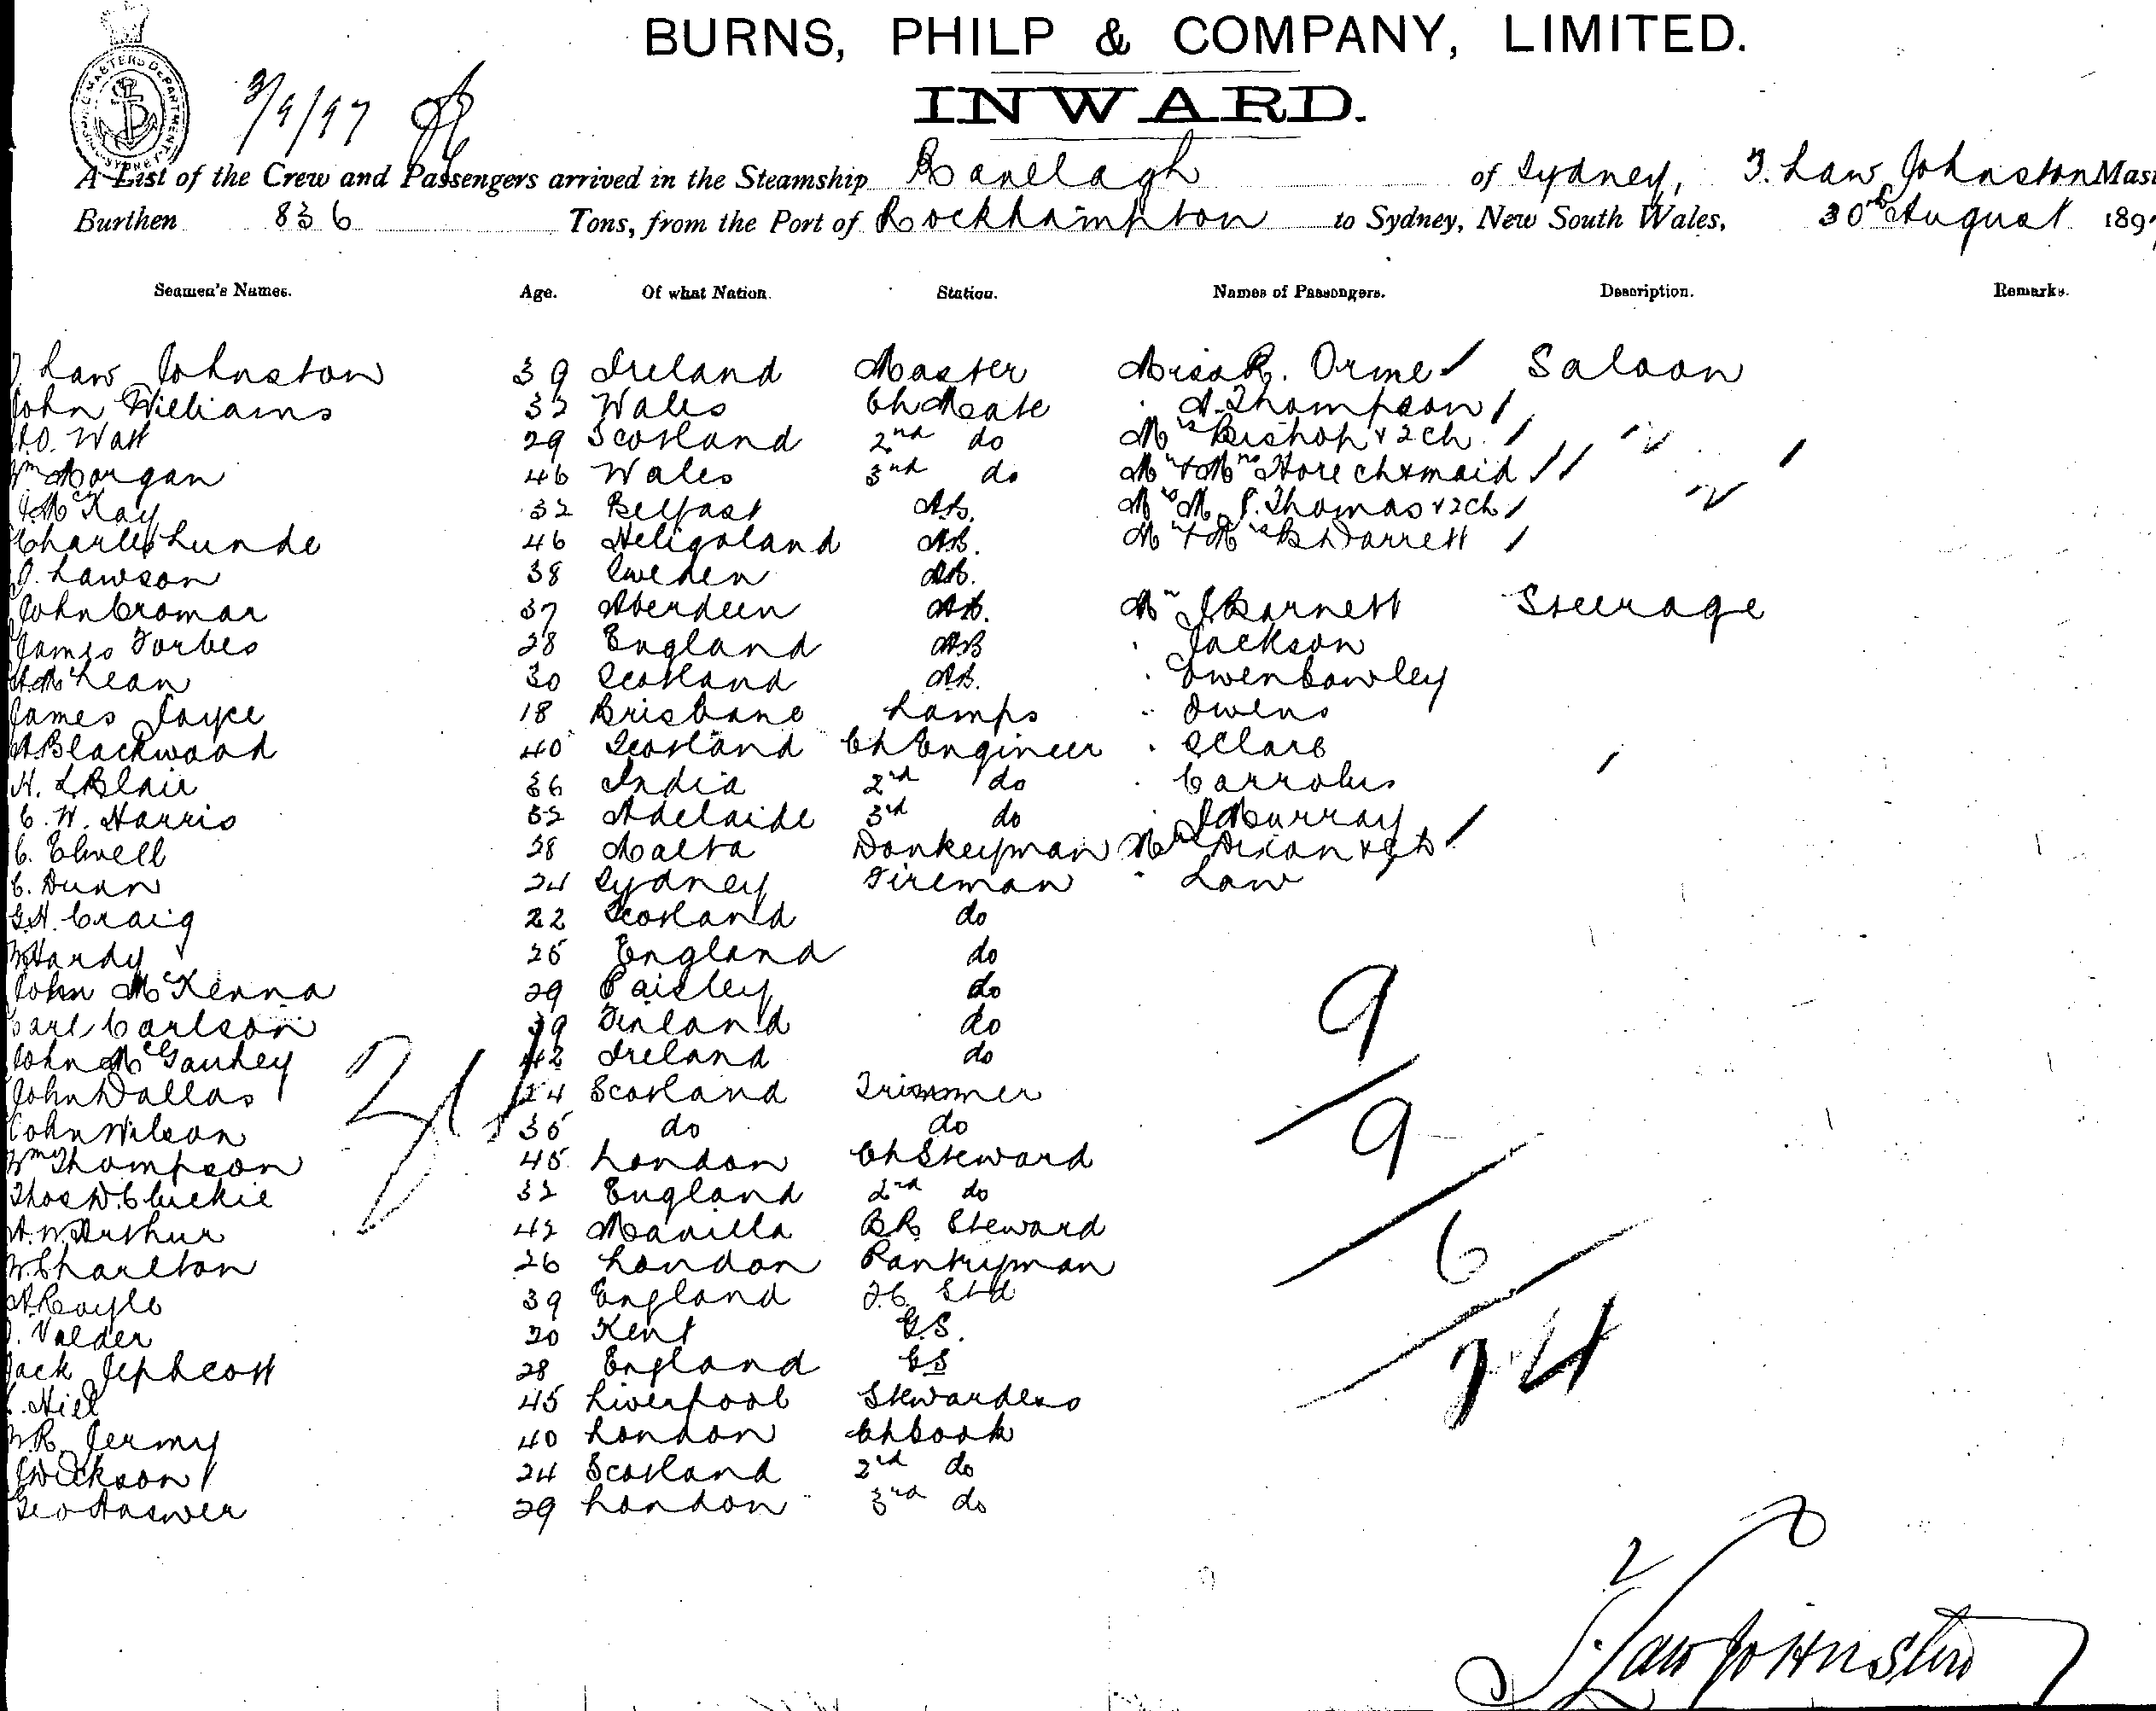 BURNS, PHILP & COMPANY, LIMITED.
INWARD.
3/9/97
A List of the Crew and Passengers arrived in the Steamship Ranelagh of Sydney, T. Law Johnston Mas
Burthen 836 Tons, from the Port of Rockhampton to Sydney, New South Wales, 30th August 189
Seamen's Names. Age. Of what Nation. Station. Names of Passengers. Description. Remarks.
Law Johnston 39 Ireland Master Miss R. Orme Saloon
John Williams Wales Ch Mate A. Thompson
Watt 29 Scotland 2nd do Mrs Bishop & 2 ch
Wm Morgan 46 Wales 3rd do Mr & Mrs Hore ch & maid
McKay 32 Belfast A.B. Thomas & 2 ch
Charles Lunde 46 Heligoland A.B. Mr & Mrs Darrett
Lawson 38 Sweden A.B.
John Cromar 37 Aberdeen A.B. Mr J Barnett Steerage
James Forbes 28 England AB Jackson
McLean 30 Scotland A.B. Owen Cowley
James Joyce 18 Brisbane Lamps Owens
A Blackwood 40 Scotland Ch Engineer
H. L Blair 36 India 2nd do
C. W. Harris 32 Adelaide 3rd do J Murray
C. Elwell 28 Malta Donkeyman Dixon
C. Dunn 24 Sydney Fireman Law
G.H. Craig 22 Scotland do
W Hardy 25 England do
John McKenna 29 Paisley do
Carl Carlson 39 Finland do
John McGauhey 42 Ireland do
John Dallas 24 Scotland Trimmer
John Wilson 35 do do
Wm Thompson 45 London Ch Steward
Thos D. Cluckie 32 England 2nd do
A. W. Arthur 42 Manilla B.R. Steward
W. Charlton 26 London Pantryman
39 England Std
Valder 20 Kent G.S.
Jack Jephcott 28 England
Hill 45 Liverpool Stewardess
W.R. Jermy 40 London Ch Cook
J Dickson 24 Scotland 2nd do
Geo Haswer 29 London 3rd do
9
9
6
24
2
T. Law Johnston